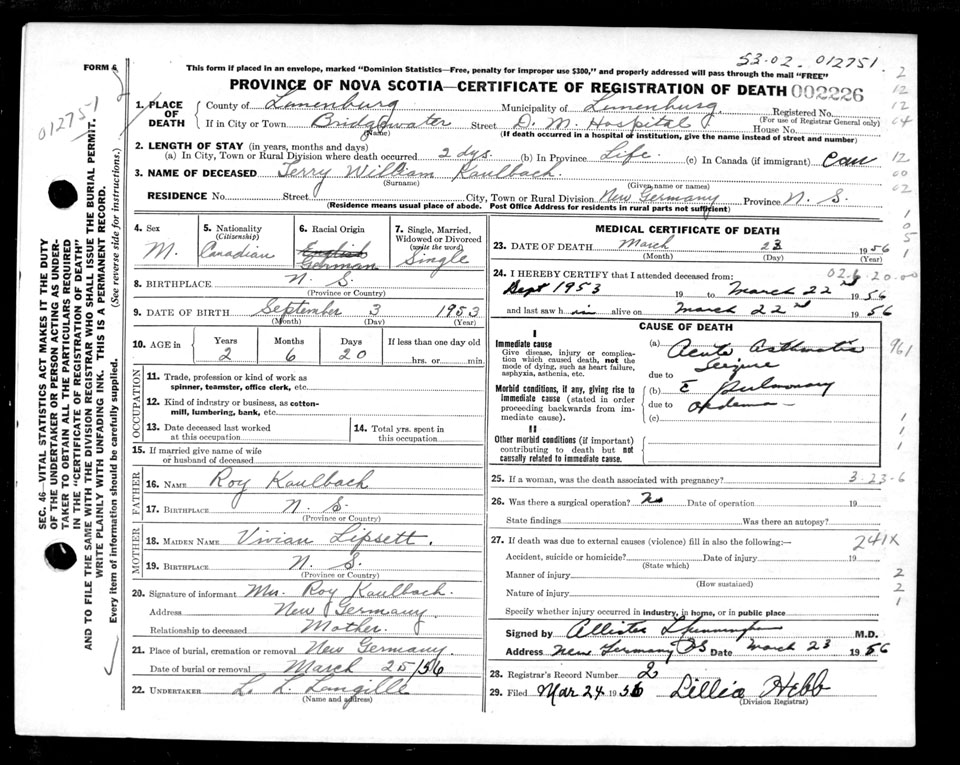 53-02. 012751.
FORM 6
This form if placed in an envelope, marked "Dominion Statistics—Free, penalty for improper use $300," and properly addressed will pass through the mail "FREE"
PROVINCE OF NOVA SCOTIA—CERTIFICATE OF REGISTRATION OF DEATH 002226
01275-1
1. PLACE OF DEATH
County of Lunenburg Municipality of Lunenburg Registered No.
(For use of Registrar General only)
If in City or Town Bridgewater Street D. M. Hospital House No.
(Name) (If death occurred in a hospital of institution, give the name instead of street and number)
2. LENGTH OF STAY (in years, months and days)
(a) In City, Town or Rural Division where death occurred 2 dys. (b) In Province Life. (c) In Canada (if immigrant) Can
3. NAME OF DECEASED Terry William Kaulbach.
(Surname) (Given name or names)
RESIDENCE No. Street City, Town or Rural Division New Germany Province N. S.
(Residence means usual place of abode. Post Office Address for residents in rural parts not sufficient)
4. Sex
M.
5. Nationality
(Citizenship)
Canadian
6. Racial Origin
English
German
7. Single, Married, Widowed or Divorced
(write the word)
Single
8. BIRTHPLACE N. S.
(Province or Country)
9. DATE OF BIRTH September 3 1953
(Month) (Day) (Year)
10. AGE in Years Months Days If less than one day old
2 6 20 hrs. or min.
OCCUPATION
11. Trade, profession or kind of work as
spinner, teamster, office clerk, etc.
12. Kind of industry or business, as cotton-
mill, lumbering, bank, etc.
13. Date deceased last worked
at this occupation
14. Total yrs. spent in
this occupation
15. If married give name of wife
or husband of deceased
FATHER
16. NAME Roy Kaulbach
17. BIRTHPLACE N. S.
(Province or Country)
MOTHER
18. MAIDEN NAME Vivian Lipsett.
19. BIRTHPLACE N. S.
(Province or Country)
20. Signature of informant Mrs. Roy Kaulbach.
Address New Germany
Relationship to deceased Mother.
21. Place of burial, cremation or removal New Germany.
Date of burial or removal March 25/56
22. UNDERTAKER L. L. Langille
(Name and address)
MEDICAL CERTIFICATE OF DEATH
23. DATE OF DEATH March 23 1956
(Month) (Day) (Year)
24. I HEREBY CERTIFY that I attended deceased from:
Sept 1953 19 to March 22nd 1956
and last saw him alive on March 22nd 1956
CAUSE OF DEATH
I
Immediate cause
Give disease, injury or complication which caused death, not the mode of dying, such as heart failure, asphyxia, asthenia, etc.
(a) Acute Asthmatic
Seizure
due to
Morbid conditions, if any, giving rise to immediate cause (stated in order proceeding backwards from immediate cause).
(b) c Pulmonary
due to Oedema
(c)
II
Other morbid conditions (if important) contributing to death but not causally related to immediate cause.
961
25. If a woman, was the death associated with pregnancy? 3-23-6
26. Was there a surgical operation? No Date of operation 19
State findings Was there an autopsy?
27. If death was due to external causes (violence) fill in also the following:— 241X
Accident, suicide or homicide? Date of injury 19
(State which)
Manner of injury
(How sustained)
Nature of injury
Specify whether injury occurred in industry, in home, or in public place
Signed by Allister M.D.
Address New Germany NS Date March 23 1956
28. Registrar's Record Number 2
29. Filed Mar 24 1956 Lillia Hebb
(Division Registrar)
SEC. 46—VITAL STATISTICS ACT MAKES IT THE DUTY
OF THE UNDERTAKER OR PERSON ACTING AS UNDER-
TAKER TO OBTAIN ALL THE PARTICULARS REQUIRED
IN THE "CERTIFICATE OF REGISTRATION OF DEATH"
AND TO FILE THE SAME WITH THE DIVISION REGISTRAR WHO SHALL ISSUE THE BURIAL PERMIT.
WRITE PLAINLY WITH UNFADING INK. THIS IS A PERMANENT RECORD.
Every item of information should be carefully supplied. (See reverse side for instructions.)